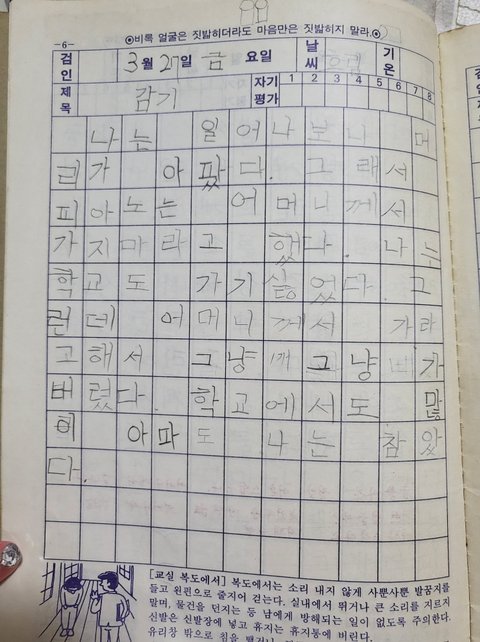 ◉비록 얼굴은 짓밟히더라도 마음만은 짓밟히지 말라.◉
-6-
검인 3월 27일 금요일 날씨 흐림 기온
제목 감기 자기평가 1 2 3 4 5 6 7 8
나는 일어나 보니 머
리가 아팠다. 그래서
피아노는 어머니께서
가지마라고 했다. 나는
학교도 가기 싫었다. 그
런데 어머니께서 가라
고해서 그냥 그냥 가
버렸다. 학교에서도 많
이 아파도 나는 참았
다.
[교실 복도에서] 복도에서는 소리 내지 않게 사뿐사뿐 발꿈치를
들고 왼편으로 줄지어 걷는다. 실내에서 뛰거나 큰 소리를 지르지
말며, 물건을 던지는 등 남에게 방해되는 일이 없도록 주의한다.
신발은 신발장에 넣고 휴지는 휴지통에 버린다.
유리창 밖으로 침을